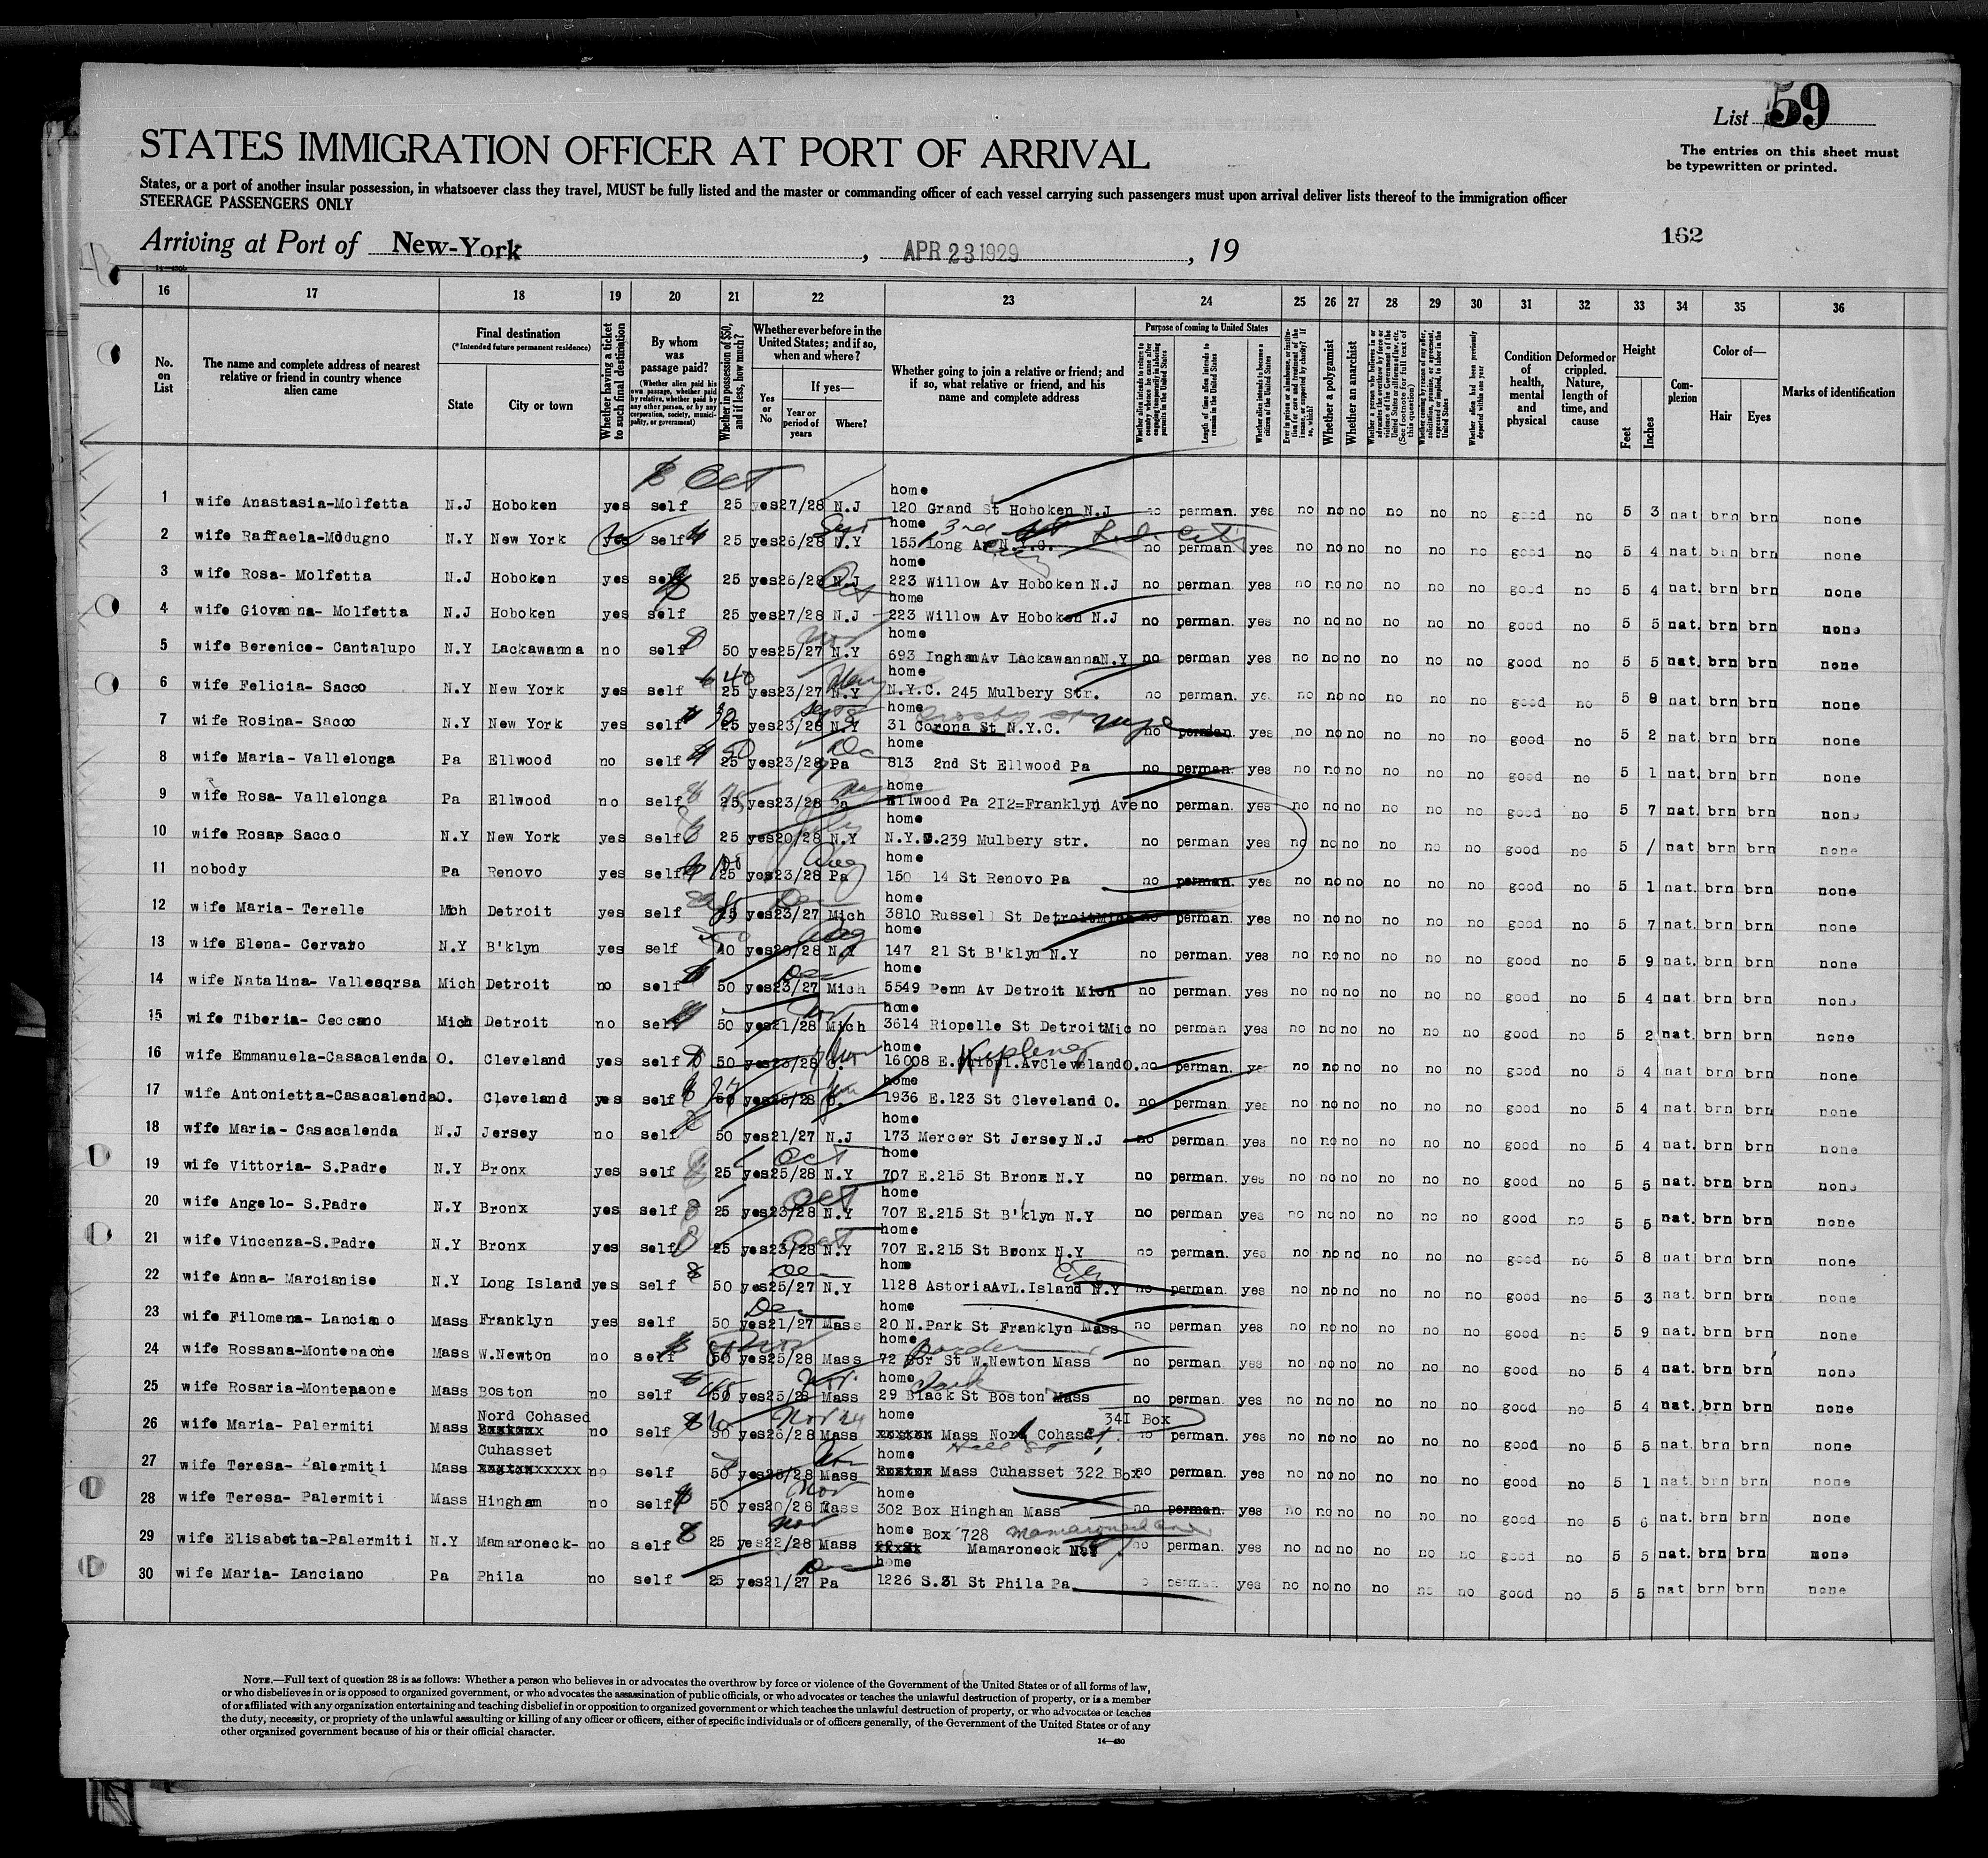 List 59
The entries on this sheet must
be typewritten or printed.
STATES IMMIGRATION OFFICER AT PORT OF ARRIVAL
States, or a port of another insular possession, in whatsoever class they travel, MUST be fully listed and the master or commanding officer of each vessel carrying such passengers must upon arrival deliver lists thereof to the immigration officer
STEERAGE PASSENGERS ONLY
Arriving at Port of New-York, APR 23 1929, 19
162
16 17 18 19 20 21 22 23 24 25 26 27 28 29 30 31 32 33 34 35 36
No. on List
The name and complete address of nearest relative or friend in country whence alien came
Final destination (*Intended future permanent residence)
State
City or town
Whether having a ticket to such final destination
By whom was passage paid?
(Whether alien paid his own passage, whether paid by relative, whether paid by any other person, or by any corporation, society, municipality, or government)
Whether in possession of $50, and if less, how much?
Whether ever before in the United States; and if so, when and where?
Yes or No
If yes—
Year or period of years
Where?
Whether going to join a relative or friend; and if so, what relative or friend, and his name and complete address
Purpose of coming to United States
Whether alien intends to return to country whence he came after engaging temporarily in laboring pursuits in the United States
Length of time alien intends to remain in the United States
Whether alien intends to become a citizen of the United States
Whether a polygamist
Whether an anarchist
Whether alien had been previously deported within one year
Condition of health, mental and physical
Deformed or crippled. Nature, length of time, and cause
Height
Feet
Inches
Complexion
Color of—
Hair
Eyes
Marks of identification
Oct
1 wife Anastasia-Molfetta N.J Hoboken yes self 25 yes 27/28 N.J home 120 Grand St Hoboken N.J no perman. yes no no no no no no good no 5 3 nat brn brn none
2 wife Raffaela-Modugno N.Y New York yes self 25 yes 26/28 N.Y home 155 Long Av N.Y.C. no perman. yes no no no no no no good no 5 4 nat brn brn none
3 wife Rosa- Molfetta N.J Hoboken yes self 25 yes 26/28 N.J home 223 Willow Av Hoboken N.J no perman. yes no no no no no no good no 5 4 nat. brn brn none
4 wife Giovanna- Molfetta N.J Hoboken yes self 25 yes 27/28 N.J home 223 Willow Av Hoboken N.J no perman. yes no no no no no no good no 5 5 nat. brn brn none
5 wife Berenice- Cantalupo N.Y Lackawanna no self 50 yes 25/27 N.Y home 693 Ingham Av Lackawanna N.Y no perman yes no no no no no no good no 5 5 nat. brn brn none
6 wife Felicia- Sacco N.Y New York yes self 40 25 yes 23/27 N.Y home N.Y.C. 245 Mulbery Str. no perman. yes no no no no no no good no 5 8 nat. brn brn none
7 wife Rosina- Sacco N.Y New York yes self 25 yes 23/28 N.Y home 31 Corona St N.Y.C. no perman. yes no no no no no no good no 5 2 nat. brn brn none
8 wife Maria- Vallelonga Pa Ellwood no self 25 yes 23/28 Pa home 813 2nd St Ellwood Pa no perman. yes no no no no no no good no 5 1 nat. brn brn none
9 wife Rosa- Vallelonga Pa Ellwood no self 25 yes 23/28 Pa home Ellwood Pa 212=Franklyn Ave no perman. yes no no no no no no good no 5 7 nat. brn brn none
10 wife Rosa Sacco N.Y New York yes self 25 yes 20/28 N.Y home N.Y. 239 Mulbery str. no perman yes no no no no no no good no 5 / nat brn brn none
11 nobody Pa Renovo yes self 25 yes 23/28 Pa home 150 14 St Renovo Pa no perman. yes no no no no no no good no 5 1 nat. brn brn none
12 wife Maria- Terelle Mich Detroit yes self 25 yes 23/27 Mich home 3810 Russell St Detroit Mich no perman. yes no no no no no no good no 5 7 nat. brn brn none
13 wife Elena- Cervaro N.Y B'klyn yes self 40 yes 20/28 N.Y home 147 21 St B'klyn N.Y no perman. yes no no no no no no good no 5 9 nat. brn brn none
14 wife Natalina- Vallesqrsa Mich Detroit no self 50 yes 23/27 Mich home 5549 Penn Av Detroit Mich no perman. yes no no no no no no good no 5 4 nat. brn brn none
15 wife Tiberia- Ceccano Mich Detroit no self 50 yes 21/28 Mich home 3614 Riopelle St Detroit Mic no perman yes no no no no no no good no 5 2 nat. brn brn none
16 wife Emmanuela-Casacalenda O. Cleveland yes self 50 yes 23/28 O. home 16008 E. Av Cleveland O. no perman. yes no no no no no no good no 5 4 nat brn brn none
17 wife Antonietta-Casacalenda O. Cleveland yes self 50 yes 25/28 O. home 1936 E.123 St Cleveland O. no perman. yes no no no no no no good no 5 4 nat. brn brn none
18 wife Maria- Casacalenda N.J Jersey no self 50 yes 21/27 N.J home 173 Mercer St Jersey N.J no perman. yes no no no no no no good no 5 4 nat. brn brn none
19 wife Vittoria- S.Padre N.Y Bronx yes self 25 yes 25/28 N.Y Oct home 707 E.215 St Bronx N.Y no perman. yes no no no no no no good no 5 5 nat. brn brn none
20 wife Angelo- S.Padre N.Y Bronx yes self 25 yes 23/28 N.Y Oct home 707 E.215 St B'klyn N.Y no perman yes no no no no no no good no 5 5 nat. brn brn none
21 wife Vincenza-S.Padre N.Y Bronx yes self 25 yes 23/28 N.Y Oct home 707 E.215 St Bronx N.Y no perman. yes no no no no no no good no 5 8 nat brn brn none
22 wife Anna- Marcianise N.Y Long Island yes self 50 yes 25/27 N.Y home 1128 Astoria Av L.Island City N.Y no perman. yes no no no no no no good no 5 3 nat. brn brn none
23 wife Filomena- Lanciano Mass Franklyn yes self 50 yes 21/27 Mass Dec home 20 N.Park St Franklyn Mass no perman yes no no no no no no good no 5 9 nat. brn brn none
24 wife Rossana-Montepaone Mass W.Newton no self 50 yes 25/28 Mass home 72 Bor St W.Newton Mass Border no perman yes no no no no no no good no 5 4 nat. brn brn none
25 wife Rosaria-Montepaone Mass Boston no self 50 yes 25/28 Mass home 29 Black St Boston Mass no perman. yes no no no no no no good no 5 4 nat. brn brn none
26 wife Maria- Palermiti Mass Nord Cohased no self 50 yes 26/28 Mass Nov 24 home 341 Box Mass Nord Cohaset no perman. yes no no no no no no good no 5 5 nat. brn brn none
27 wife Teresa- Palermiti Mass Cuhasset no self 50 yes 25/28 Mass Nov home Mass Cuhasset 322 Box no perman. yes no no no no no no good no 5 1 nat. brn brn none
28 wife Teresa- Palermiti Mass Hingham no self 50 yes 20/28 Mass Nov home 302 Box Hingham Mass no perman. yes no no no no no no good no 5 6 nat. brn brn none
29 wife Elisabetta-Palermiti N.Y Mamaroneck- no self 25 yes 22/28 Mass Nov home Box 728 Mamaroneck no perman. yes no no no no no no good no 5 5 nat. brn brn none
30 wife Maria- Lanciano Pa Phila no self 25 yes 21/27 Pa Dec home 1226 S.31 St Phila Pa. perman. yes no no no no no no good no 5 5 nat brn brn none
NOTE.—Full text of question 28 is as follows: Whether a person who believes in or advocates the overthrow by force or violence of the Government of the United States or of all forms of law,
or who disbelieves in or is opposed to organized government, or who advocates the assassination of public officials, or who advocates or teaches the unlawful destruction of property, or is a member
of or affiliated with any organization entertaining and teaching disbelief in or opposition to organized government or which teaches the unlawful destruction of property, or who advocates or teaches
the duty, necessity, or propriety of the unlawful assaulting or killing of any officer or officers, either of specific individuals or of officers generally, of the Government of the United States or of any
other organized government because of his or their official character.
14—430